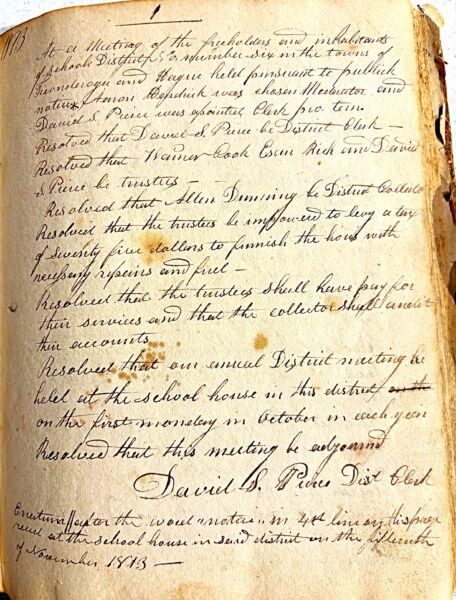 1
1813
At a Meeting of the freeholders and inhabitants
of School District No number six in the towns of
Ticonderoga and Hague held pursuant to publick
notice* Aaron was chosen Moderator and
David S. Pierce was apointed Clerk pro. tem.
Resolved that David S Pierce be District Clerk —
Resolved that Warner Cook Esran Rich and David
S Pierce be trustees —
Resolved that Allen Dunning be District Collector
Resolved that the trustees be impowered to levy a tax
of seventy five dollars to furnish the hous with
necessary repairs and fuel —
Resolved that the trustees shall have pay for
their services and that the collector shall audit
their accounts
Resolved that our anual District meeting be
held at the school house in this district on the
on the first monday in October in each year
Resolved that this meeting be adjournd
David S. Pierce Dist Clerk
Erratum after the word "notice" in 4th line on this page
read at the school house in said district on the fifteenth
of November 1813 —